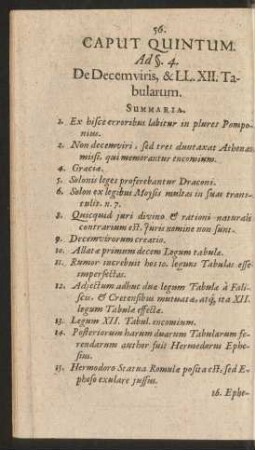 56.
CAPUT QUINTUM.
Ad §. 4.
De Decemviris, & LL. XII. Ta-
bularum.
SUMMARIA.
1. Ex hisce erroribus labitur in plures Pompo-
nius.
2. Non decemviri, sed tres duntaxat Athenas
missi, qui memorantur encomium.
4. Graciæ.
5. Solonis leges proferebantur Draconi.
6. Solon ex legibus Moysis multas in suas trans-
tulit. n. 7.
8. Quicquid juri divino & rationi naturali
contrarium est, Juris nomine non sunt.
9. Decemvirorum creatio.
10. Allatæ primùm decem Legum tabulæ.
11. Rumor increbuit has 10. legum Tabulas esse
imperfectas.
12. Adjectum adhuc duæ legum Tabulæ à Fali-
scis, & Cretensibus mutuatæ, atq; ita XII.
legum Tabulæ effectæ.
13. Legum XII. Tabul. encomium.
14. Posteriorum harum duarum Tabularum fe-
rendarum author fuit Hermodorus Ephe-
sius.
15. Hermodoro Statua Romulæ posita est, sed E-
pheso exulare jussus.
16. Ephe-